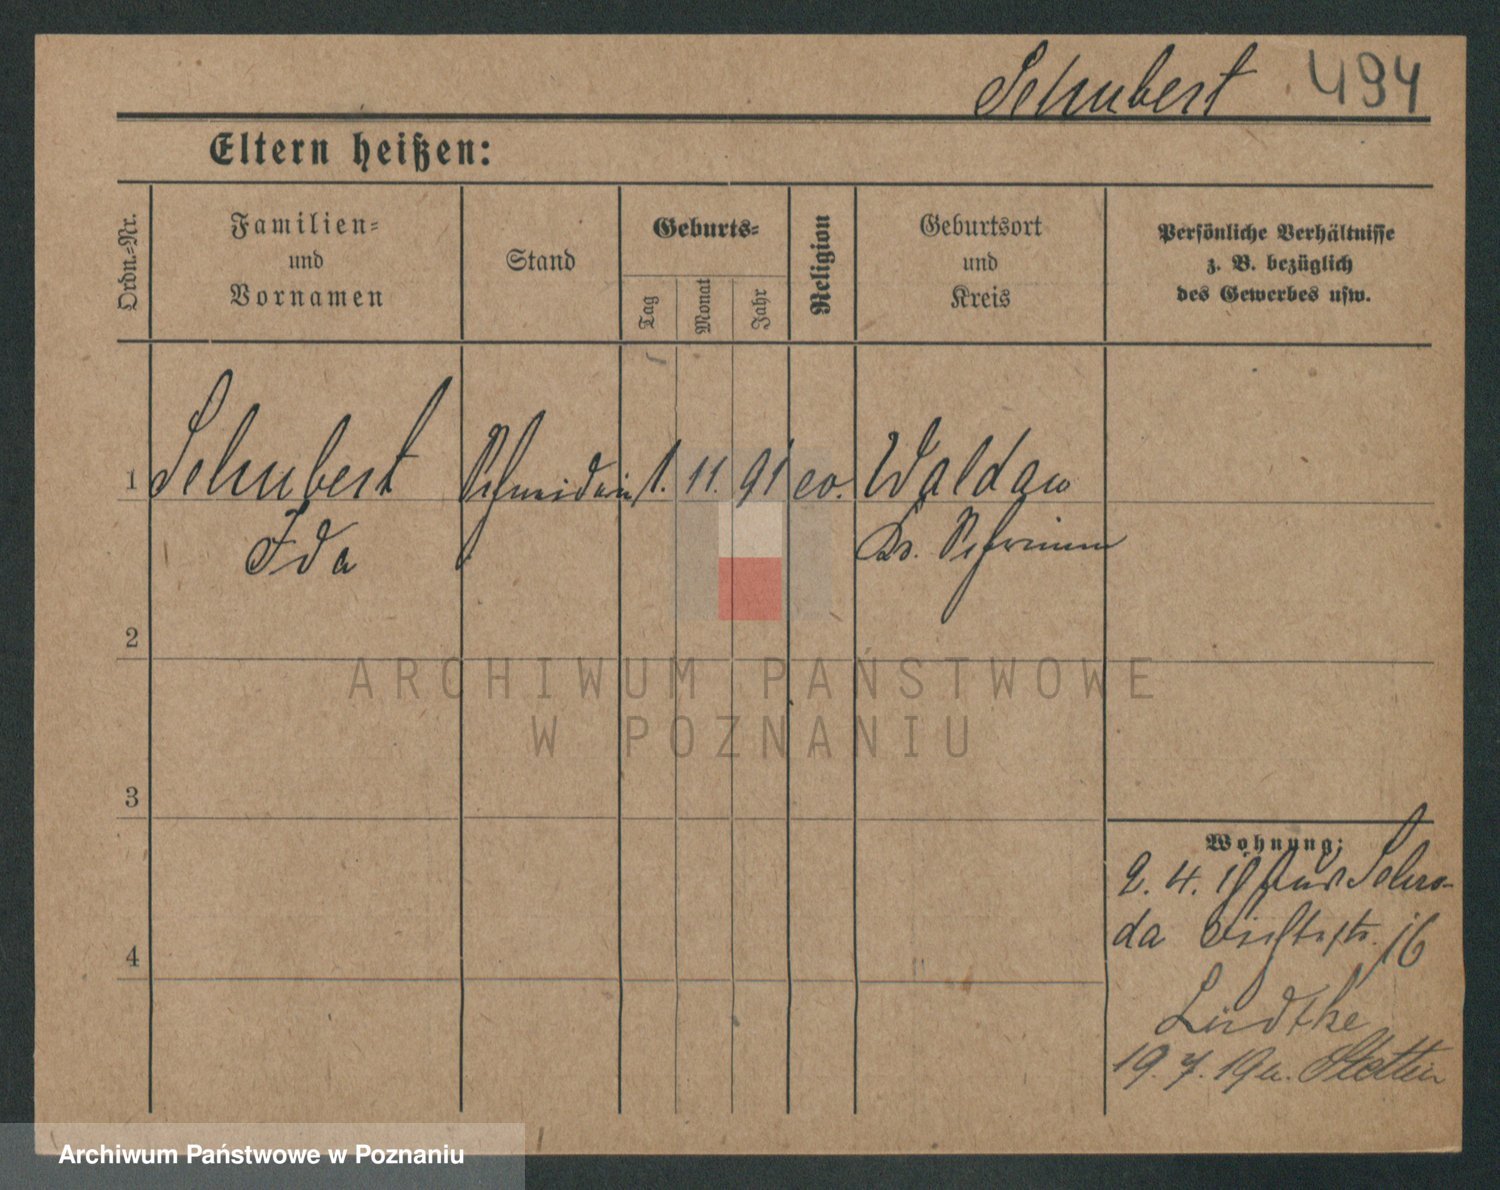 Schubert 494
Eltern heißen:
Ordn.-Nr.
Familien-
und
Vornamen
Stand
Geburts-
Tag
Monat
Jahr
Religion
Geburtsort
und
Kreis
Persönliche Verhältnisse
z. B. bezüglich
des Gewerbes usw.
1 Schubert Schneiderin 1. 11. 91 ev. Waldau
Ida Kr. Schrimm
2
3
4
Wohnung:
2. 4. 19 aus Schro-
da 16
Lüdtke
19. 7. 19 n. Stettin
ARCHIWUM PAŃSTWOWE
W POZNANIU
Archiwum Państwowe w Poznaniu